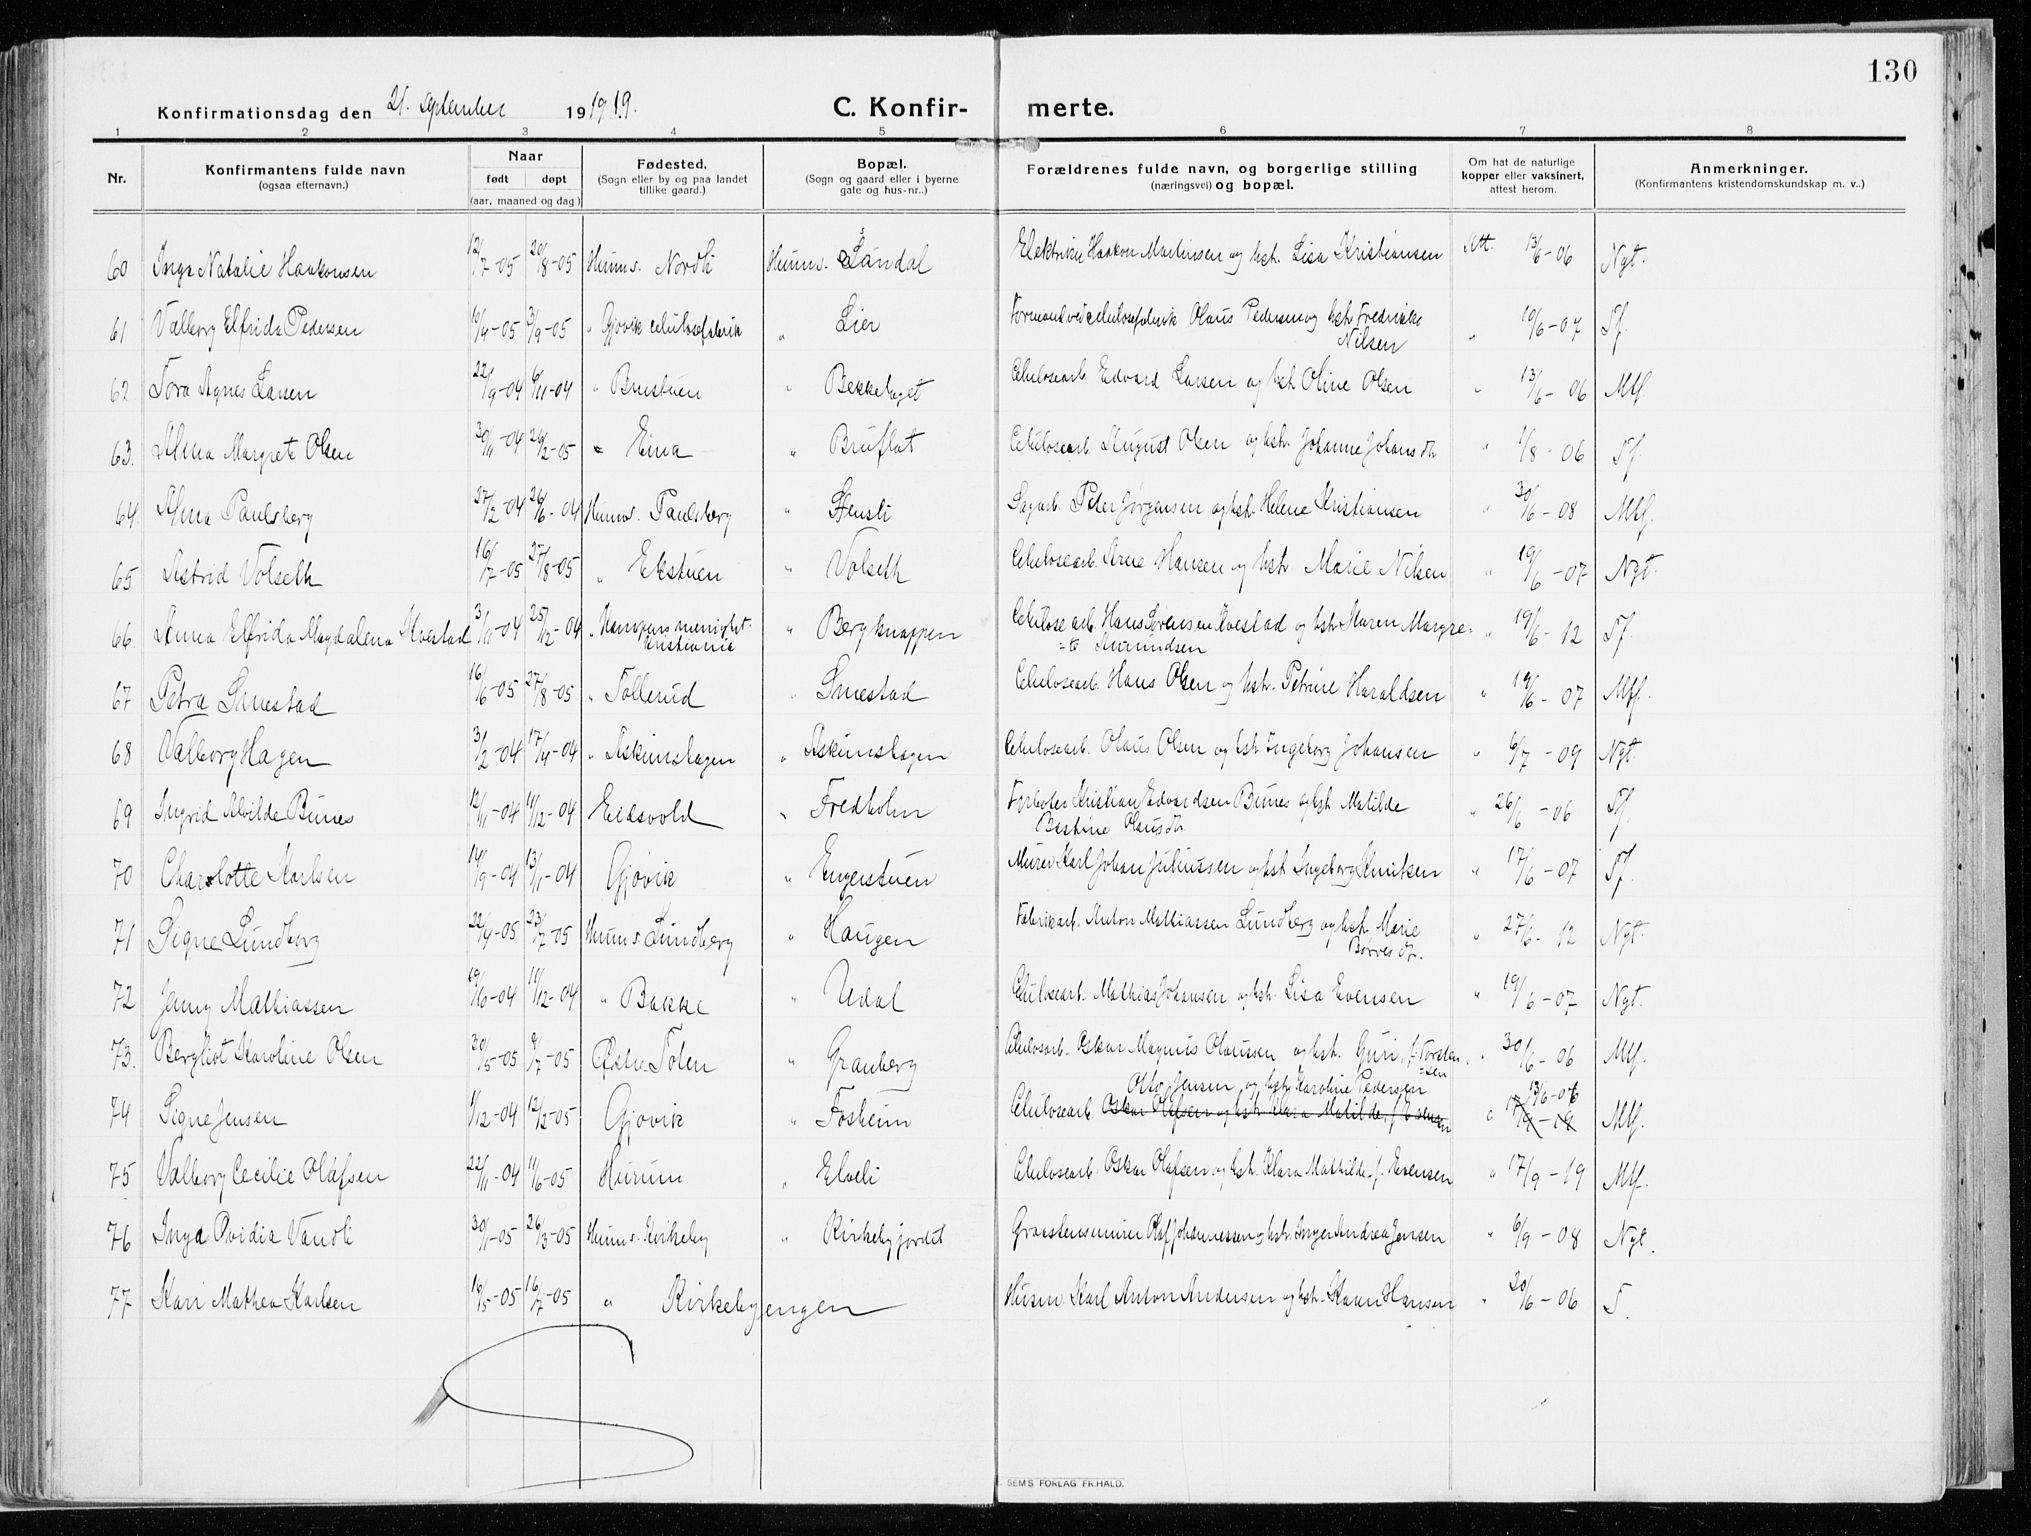 130
Konfirmationsdag den 21. september 1919. C. Konfir- merte.
1 2 3 4 5 6 7 8
Nr. Konfirmantens fulde navn (ogsaa efternavn.) Naar født døpt (aar, maaned og dag) Fødested. (Sogn eller by og paa landet tillike gaard.) Bopæl. (Sogn og gaard eller i byerne gate og hus-nr..) Forældrenes fulde navn, og borgerlige stilling (næringsvei) og bopæl. Om hat de naturlige kopper eller vaksinert, attest herom. Anmerkninger. (Konfirmantens kristendomskundskap m. v..)
60 Inga Natalie Haakonsen 12/7-05 20/8-05 Hunns. Nordli Hunns. Sandal Elektriker Haakon Martinsen og hst. Lisa Kristiansen Att. 13/6-06 Ngt.
61 Valborg Elfrida Pedersen 19/4-05 3/9-05 " Gjøvik celulosefabrik " Lier Formand ved celulosefabrik Olaus Pedersen og hst. Fredrikke Nilsen " 19/6-07 Tf.
62 Tora Agnes Larsen 22/9-04 6/11-04 " Brustuen " Bekkehaget Celulosearb. Edvard Larsen og hst. Oline Olsen " 13/6-06 Mtf.
63. Alma Margrete Olsen 30/11-04 26/2-05 " Eina " Bruflat Celulosearb. August Olsen og hst. Johanne Johans dtr " 1/8-06 Tf.
64. Alma Paulsberg 27/2-04 26/6-04 Hunns. Paulsberg " Stensli Sagarb. Peter Jørgensen og hst. Helene Kristiansen " 30/6-08 Mtf.
65 Astrid Volseth 16/7-05 27/8-05 " Ekstuen " Volseth Celulosearb. Arne Hansen og hst. Marie Nilsen " 19/6-07 Ngt.
66. Anna Elfrida Magdalena Kvestad 3/11-04 25/12-04 " Kampens menighet Kristiania " Bergknappen Celulose arb. Hans Sørensen Kvestad og hst. Karen Margre= =te Amundsen " 19/6-12 Tf.
67 Petra Smestad 16/6-05 27/8-05 " Tollerud " Smestad Celulosearb. Hans Olsen og hst. Petrine Haraldsen " 19/6-07 Mtf.
68 Valborg Hagen 3/2-04 17/4-04 " Askimshagen " Askimshagen Celulosearb. Olaus Olsen og hst. Ingeborg Johansen " 6/7-09 Ngt.
69 Ingrid Alvilde Bunes 12/11-04 11/12-04 Eidsvold " Fredholm Fyrbøter Kristian Edvardsen Bunes og hst. Matilde Bestine Olausdtr. " 26/6-06 Tf.
70 Charlotte Karlsen 14/9-04 13/11-04 Gjøvik " Engerstuen Murer Karl Johan Juliussen og hst. Ingeborg Knutsen " 17/6-07 Tf.
71 Signe Lundberg 22/4-05 23/7-05 Hunns. Lundberg " Haugen Fabrikarb. Anton Mathiassen Lundberg og hst. Marie Børresdtr. " 27/6-12 Ngt.
72 Jenny Mathiassen 19/10-04 11/12-04 " Bakke " Udal Celulosearb. Mathias Johansen og hst. Lisa Evensen " 19/6-07 Ngt.
73. Bergliot Karoline Olsen 30/5-05 9/7-05 Østre Toten " Granberg Celulosearb. Oskar Magnus Olaussen og hst. Guri, f. Torsten =sen " 30/6-06 Mtf.
74 Signe Jensen 1/12-04 12/2-05 Gjøvik " Fosheim Celulosearb. Otto Jensen og hst. Karoline Pedersen Oskar Olafsen og hst. Klara Matilde, f. Evensen " 13/6-06 17/9-19 Mtf.
75 Valborg Cecilie Olafsen 22/11-04 11/6-05 Hurum " Elveli Celulosearb. Oskar Olafsen og hst. Klara Mathilde f. Evensen " 17/9-19 Mtf.
76 Inga Ovidia Vandli 30/1-05 26/3-05 Hunns. Kirkeby " Kirkebyjordet Graastensmurer Olaf Johannessen og hst. Inger Andrea Jensen " 6/9-08 Ngt.
77 Kari Mathea Karlsen 19/5-05 16/7-05 " Kirkebyengen Husm. Karl Anton Andersen og hst. Karen Hansen " 20/6-06 T.
SEM'S FORLAG FR.HALD.